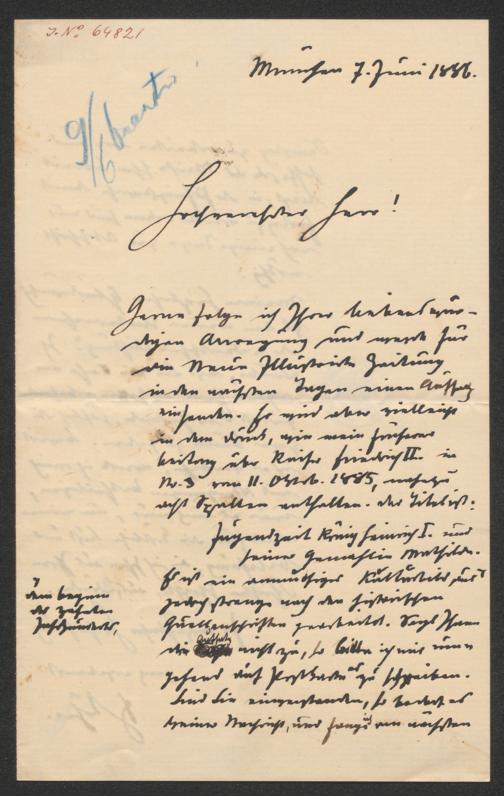 J. No 64821
München 7. Juni 1886.
9/6
Hochverehrter Herr!
Gerne folge ich Ihrer liebenswür-
digen Anregung und werde für
die Neue Illustrirte Zeitung
in den nächsten Tagen einen Aufsatz
einsenden. Er wird aber vielleicht
in dem Druck, wie mein früherer
Beitrag über Kaiser Friedrich II. in
Nr. 3 vom 11. Octob. 1885, nahezu
acht Spalten enthalten. Der Titel ist:
Jugendzeit König Heinrich I. und
seiner Gemahlin Mathilde.
Es ist ein anmuthiges Kulturbild, aus
dem Beginn
des zehnten
Jahrhunderts,
jedoch strenge nach den historischen
Quellenschriften gearbeitet. Sagt Ihnen
der Aufsatz nicht zu, so bitte ich mir umgehend
auf Postkarte zu schreiben.
Sind Sie einverstanden, so bedarf es
keiner Nachricht, und am nächsten